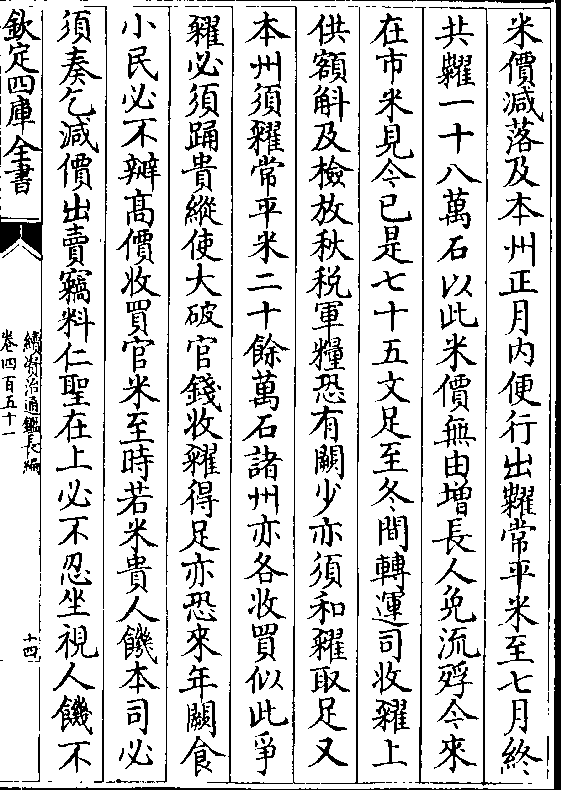 米價減落及本州正月内便行出糶常平米至七月終
共糶一十八萬石以此米價無由增長人免流殍今來
在市米見今已是七十五文足至冬間轉運司收糴上
供額斛及檢放秋稅軍糧恐有闕少亦須和糴取足又
本州須糴常平米二十餘萬石諸州亦各收買似此爭
糴必須踊貴縱使大破官錢收糴得足亦恐來年闕食
小民必不辦高價收買官米至時若米貴人饑本司必
須奏乞減價出賣竊料仁聖在上必不忍坐視人饑不
欽定四庫全書
續資治通鑑長編
卷四百五十一
十四